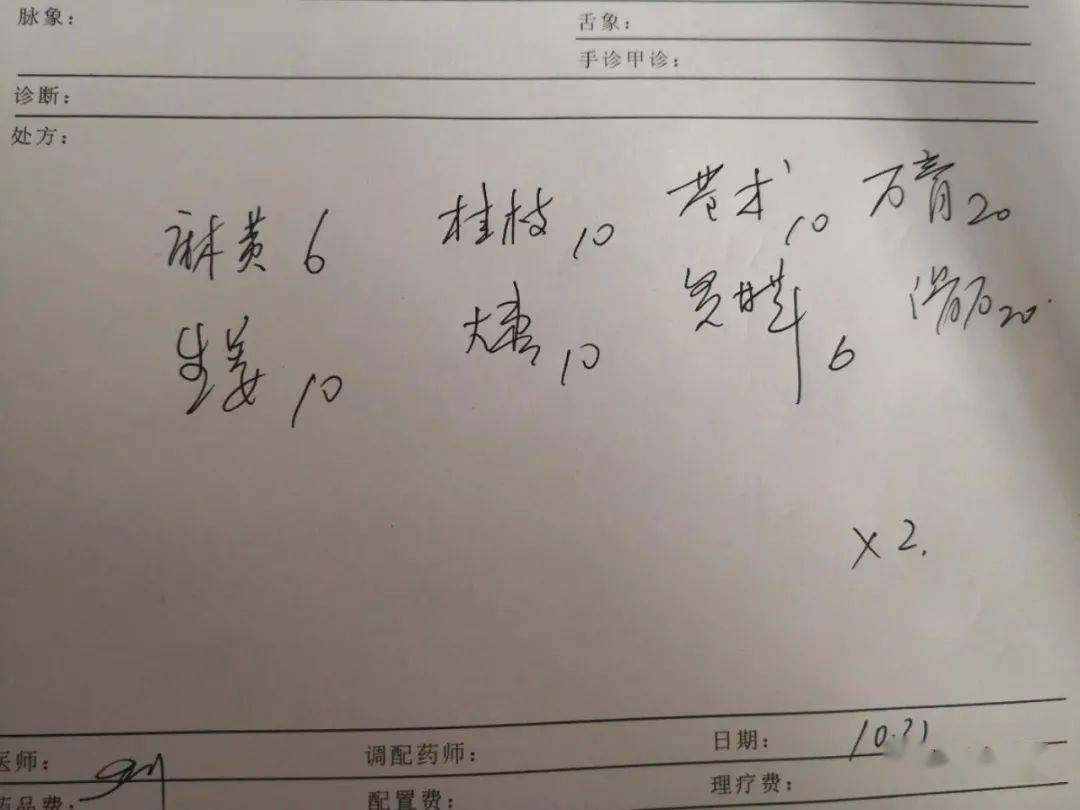 脉象：
舌象：
手诊甲诊：
诊断：
处方：
麻黄 6 桂枝 10 苍术 10 石膏 20
生姜 10 大枣 10 炙甘草 6 滑石 20
×2.
医师：
调配药师：
日期： 10.21
药品费：
配置费：
理疗费：